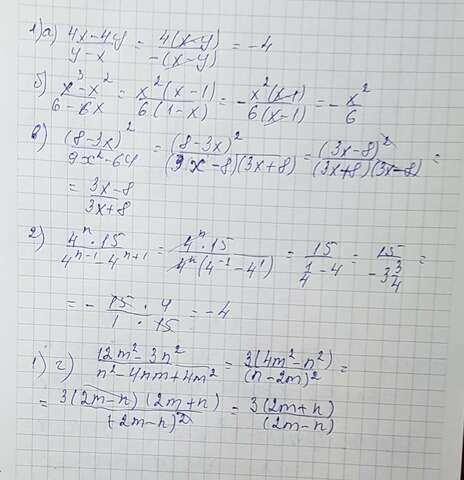 1) а) (4x-4y)/(y-x) = 4(x-y)/-(x-y) = -4
б) (x³-x²)/(6-6x) = x²(x-1)/6(1-x) = -x²(x-1)/6(x-1) = -x²/6
в) (8-3x)²/(9x²-64) = (8-3x)²/(3x-8)(3x+8) = (3x-8)²/(3x+8)(3x-8) =
= (3x-8)/(3x+8)
2) 4ⁿ·15/(4ⁿ⁻¹-4ⁿ⁺¹) = 4ⁿ·15/4ⁿ(4⁻¹-4¹) = 15/(1/4-4) = 15/(-3 3/4) =
= -(15·4)/(1·15) = -4
1) г) (12m²-3n²)/(n²-4nm+4m²) = 3(4m²-n²)/(n-2m)² =
= 3(2m-n)(2m+n)/(2m-n)² = 3(2m+n)/(2m-n)